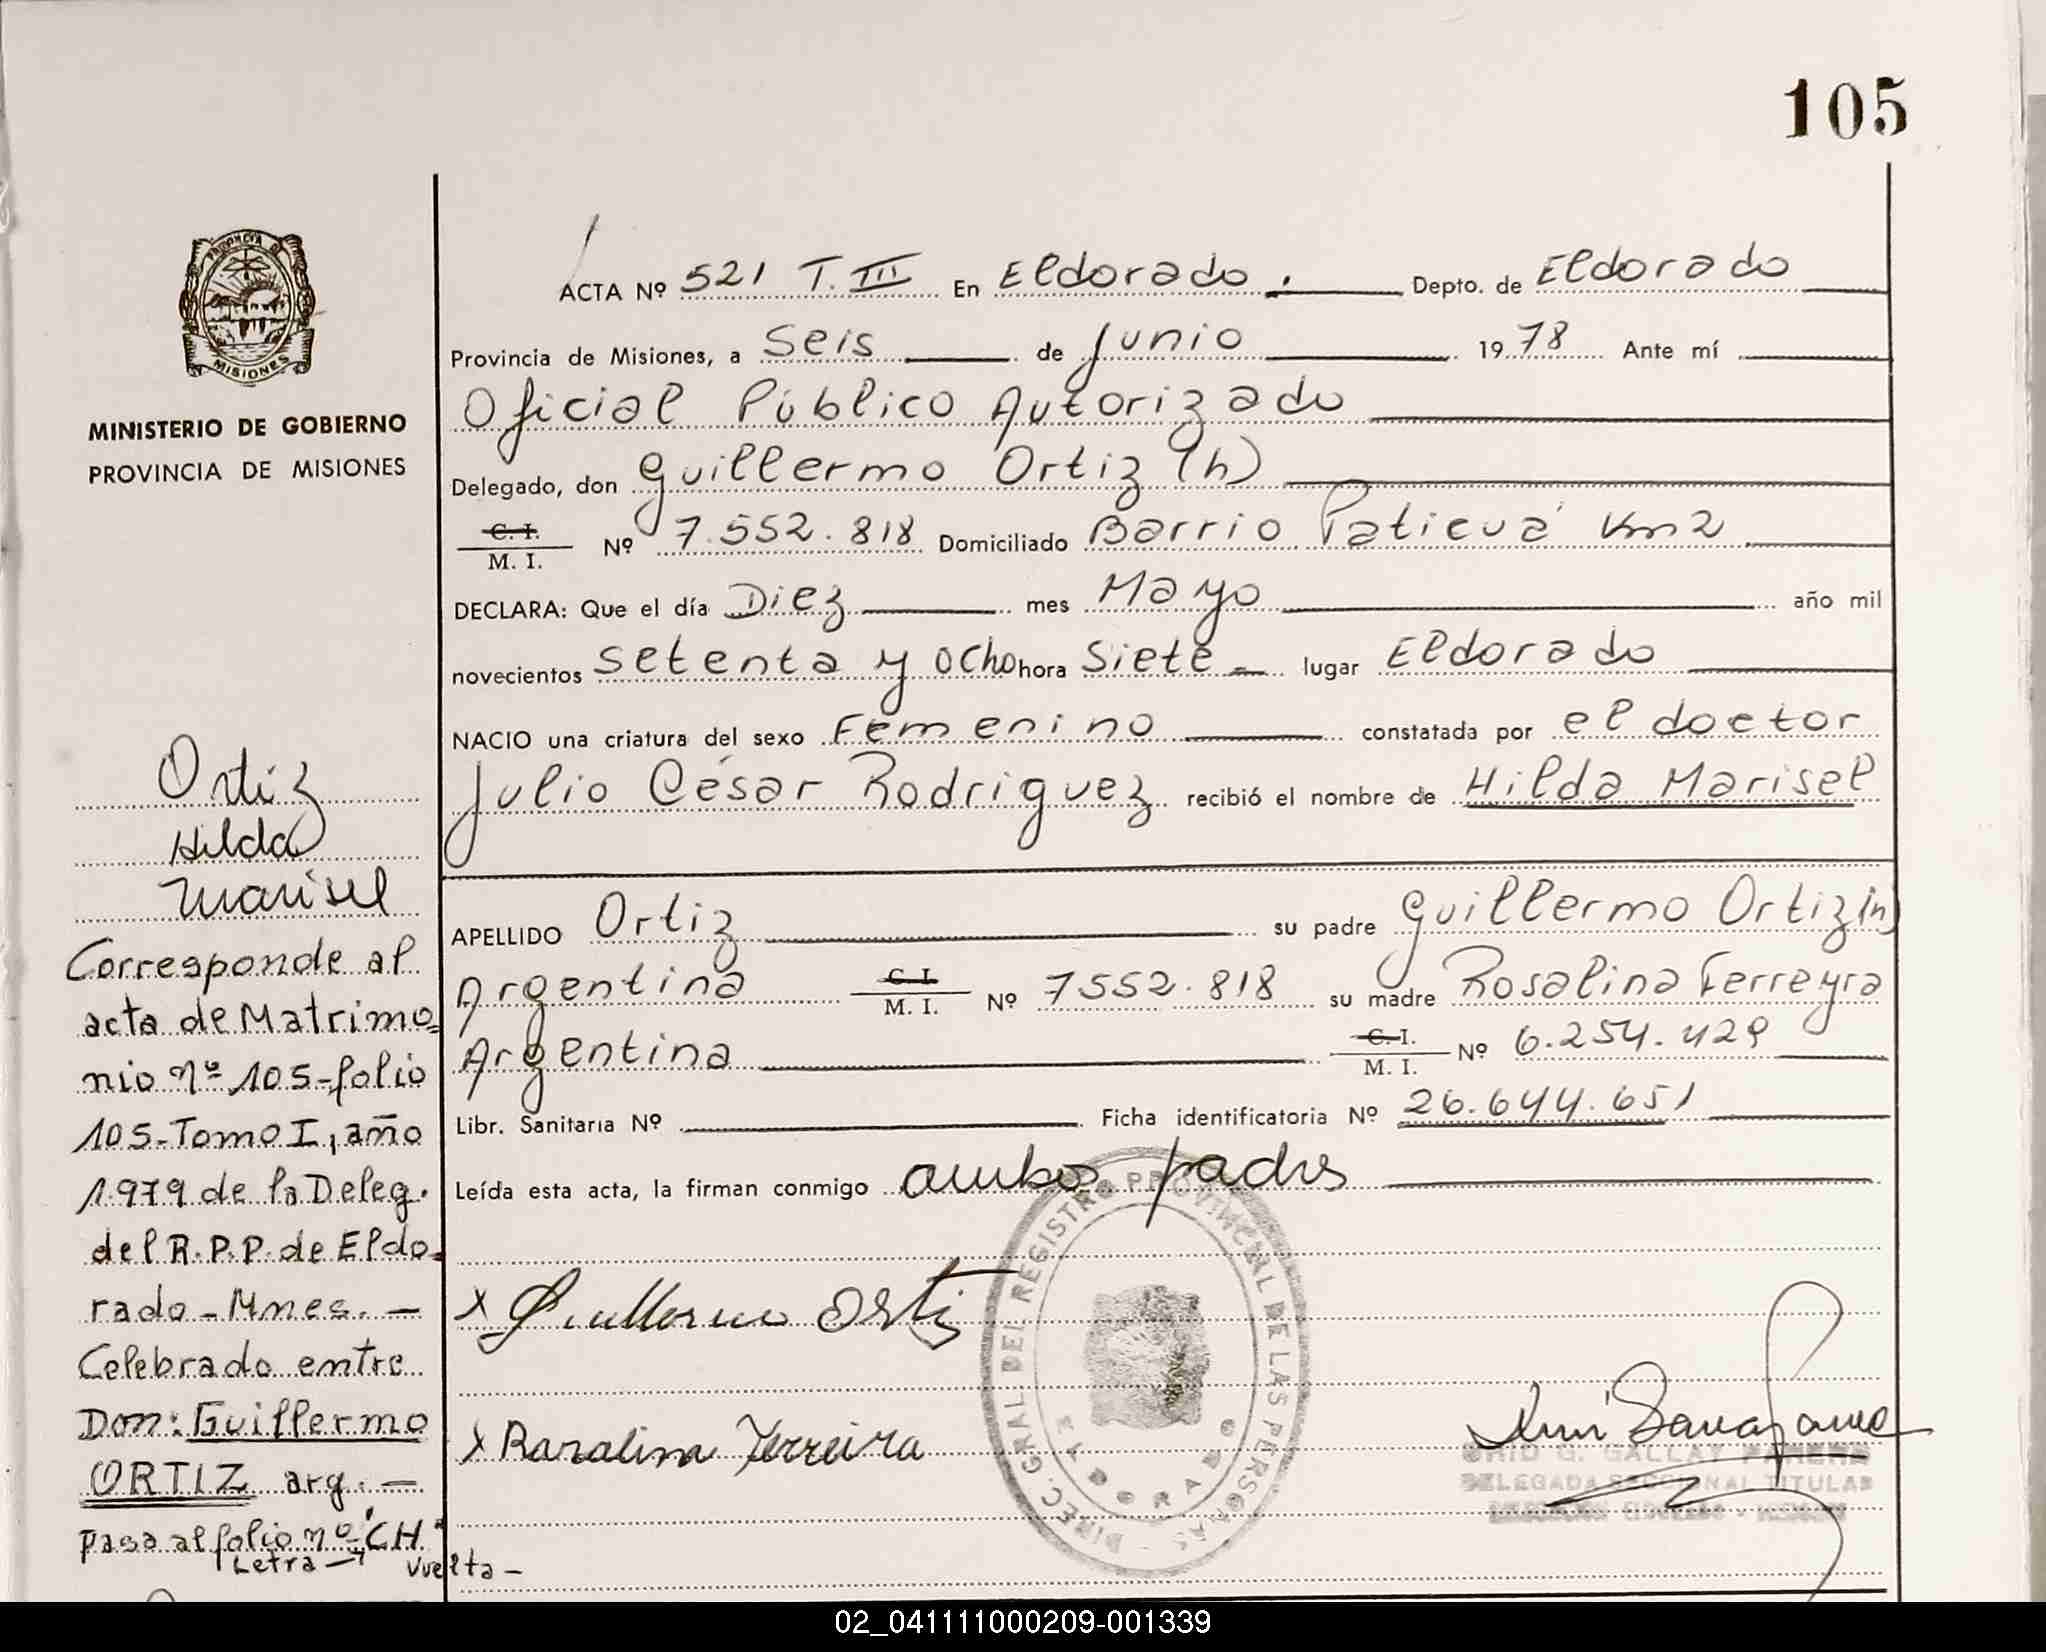 105
PROVINCIA DE
MISIONES
MINISTERIO DE GOBIERNO
PROVINCIA DE MISIONES
ACTA Nº 521 T. III En Eldorado. Depto. de Eldorado
Provincia de Misiones, a Seis de Junio 1978 Ante mí
Oficial Público Autorizado
Delegado, don Guillermo Ortiz (h)
C. I.
M. I. Nº 7.552.818 Domiciliado Barrio Patieuá Km 2
DECLARA: Que el día Diez mes Mayo año mil
novecientos Setenta y Ocho hora Siete lugar Eldorado
NACIO una criatura del sexo Femenino constatada por el doctor
Julio César Rodriguez recibió el nombre de Hilda Marisel
APELLIDO Ortiz su padre Guillermo Ortiz (h)
Argentina C. I. M. I. Nº 7552.818 su madre Rosalina Ferreyra
Argentina C. I. M. I. Nº 6.254.429
Libr. Sanitaria Nº Ficha identificatoria Nº 26.644.651
Leída esta acta, la firman conmigo ambos padres
x Guillermo Ortiz
x Rosalina Ferreira
DIREC. GRAL DEL REGISTRO PROVINCIAL DE LAS PERSONAS
ELDORADO
G. GALLAY
DELEGADA SECCIONAL TITULAR
Ortiz
Hilda
Marisel
Corresponde al
acta de Matrimo=
nio nº 105-folio
105-Tomo I, año
1.979 de la Deleg.
del R.P.P. de Eldo=
rado - Mnes. -
Celebrado entre
Don: Guillermo
ORTIZ arg. -
pasa al folio nº "CH"
Letra → Vuelta -
02_041111000209-001339